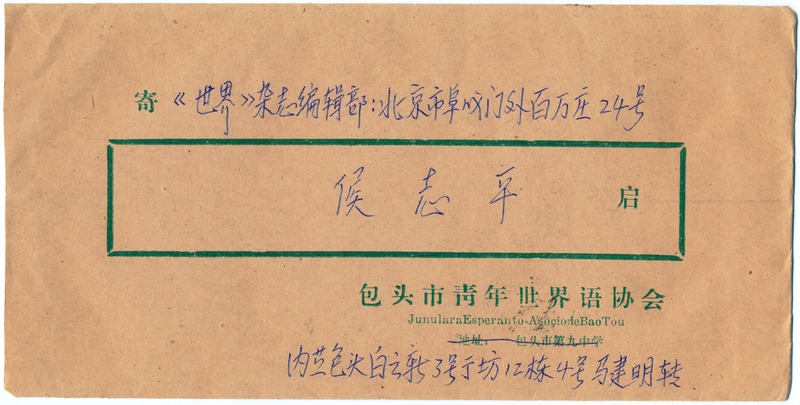 寄《世界》杂志编辑部:北京市阜成门外百万庄24号
侯志平 启
包头市青年世界语协会
Junulara Esperanto-Asocio de BaoTou
地址: 包头市第九中学
包头白云新3号街坊12栋4号马建明转